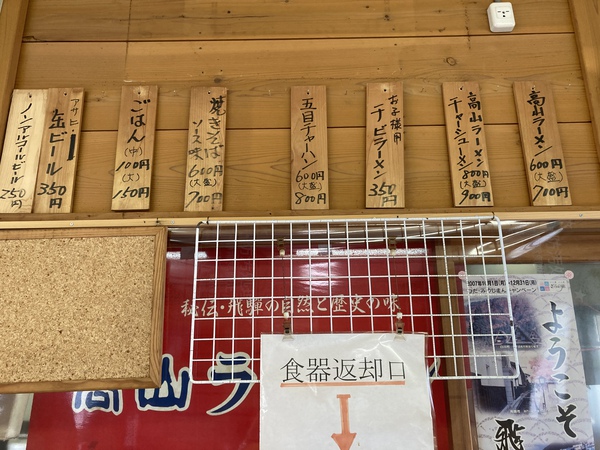 高山ラーメン
600円
(大盛)
700円
高山ラーメン
チャーシューメン
800円
(大盛)
900円
お子様用
チビラーメン
350円
五目チャーハン
600円
(大盛)
800円
焼きそば
ソース味
600円
(大盛)
700円
ごはん
(中)
100円
(大)
150円
アサヒ
缶ビール
350円
ノンアルコールビール
250円
秘伝・飛騨の自然と歴史の味
高山ラ
食器返却口
ようこそ
飛